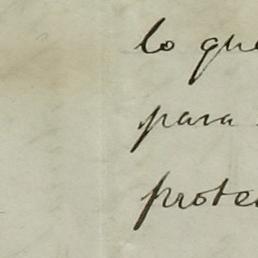 lo que
para
prote